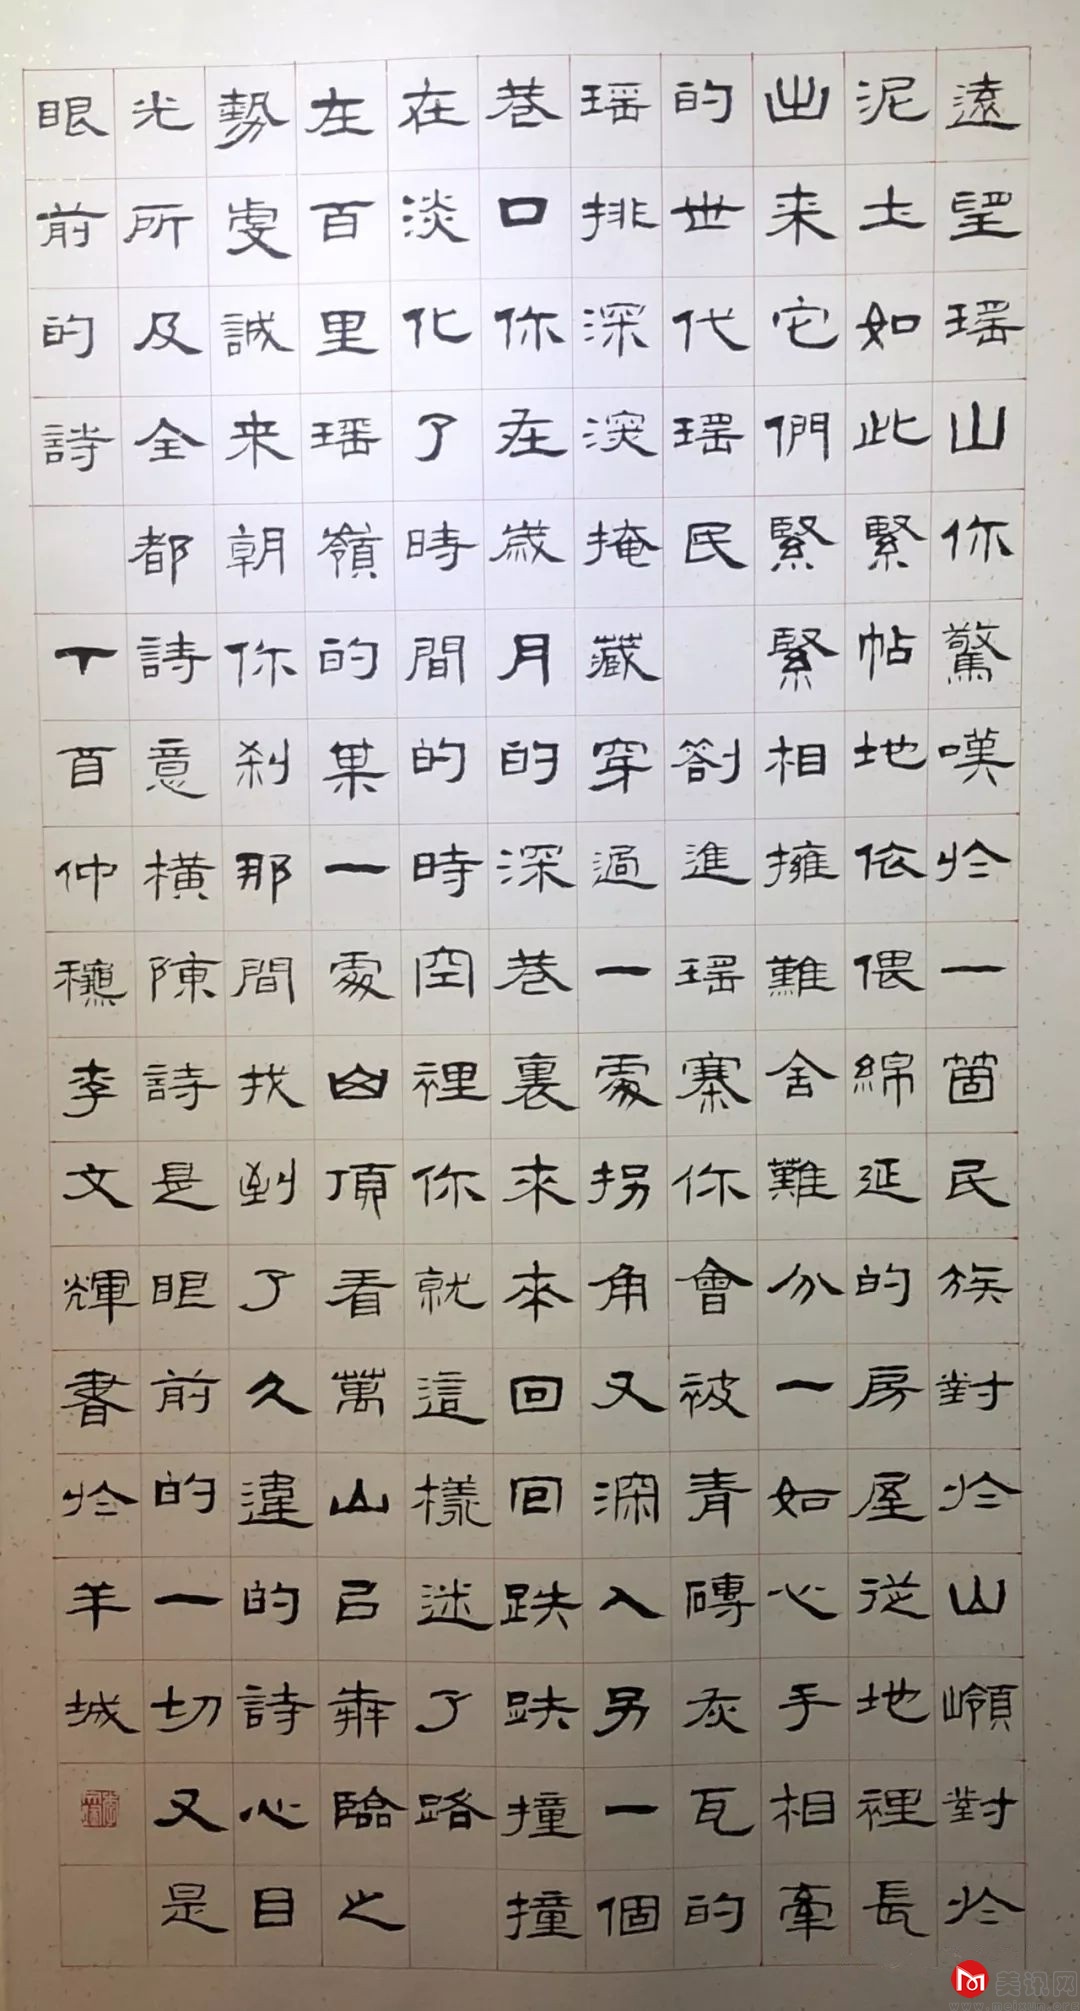 遠望瑶山你驚嘆於一箇民族對於山嶺對於
泥土如此緊帖地依偎綿延的房屋從地裡長
出来它們緊緊相擁難舍難分一如心手相牽
的世代瑶民 劄進瑶寨你會被青磚灰瓦的
瑶排深深掩藏穿過一處拐角又深入另一個
巷口你在歲月的深巷裏來來回回跌跌撞撞
在淡化了時間的時空裡你就這樣迷了路
在百里瑶嶺的某一處山頂看萬山㠯犇臨之
勢虔誠来朝你刹那間找到了久違的詩心目
光所及全都詩意橫陳詩是眼前的一切又是
眼前的詩 丁酉仲龝李文輝書於羊城
美讯网